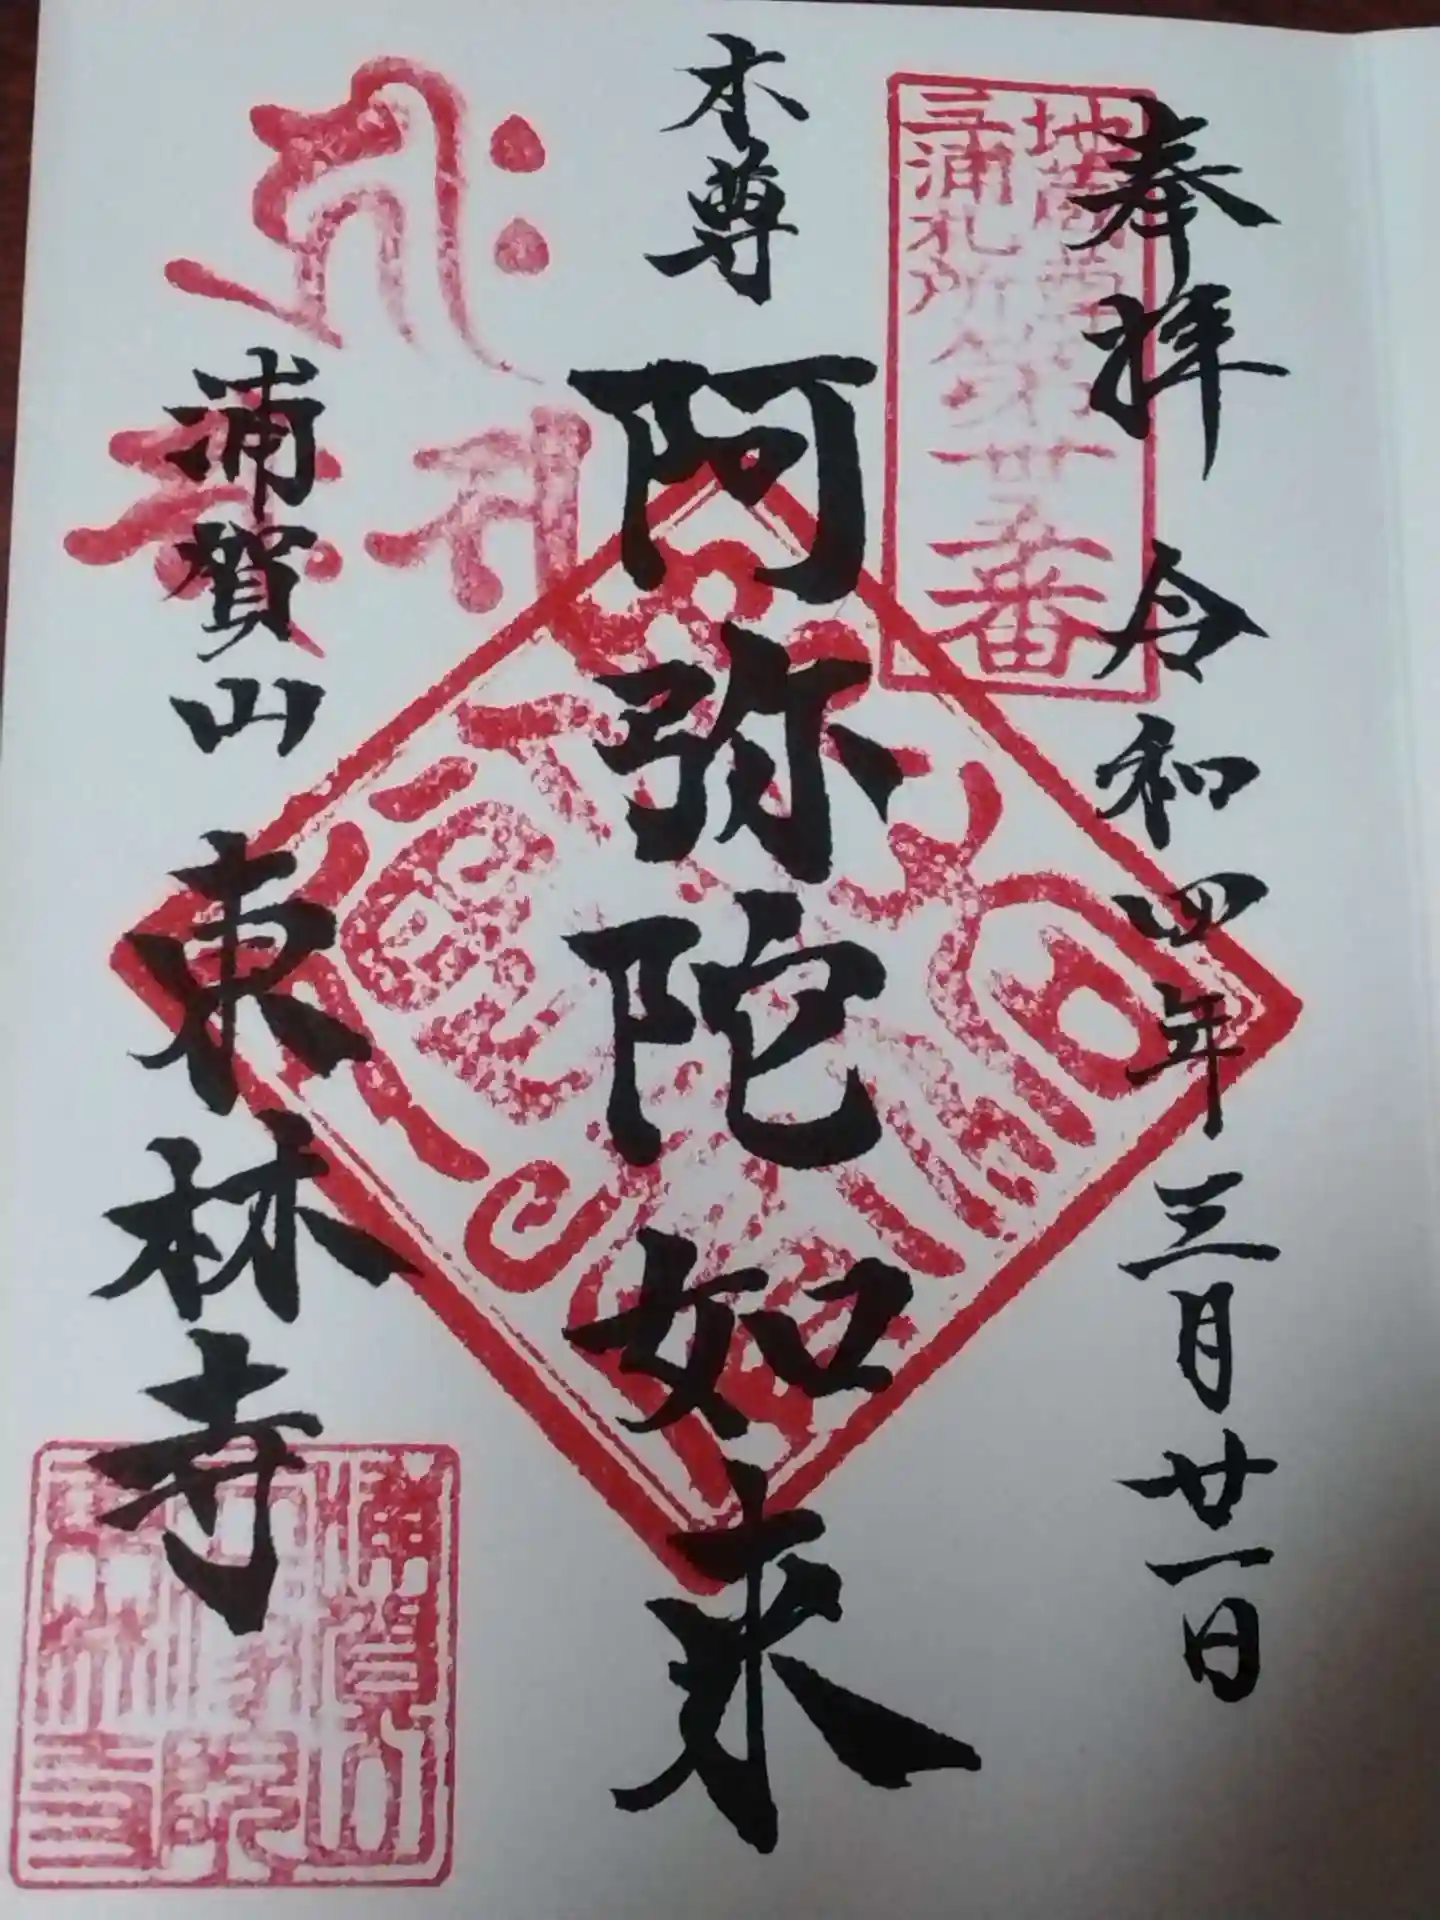 奉拝 令和四年三月廿一日
地蔵尊
三浦札所第廿五番
本尊 阿弥陀如来
浦賀山 東林寺